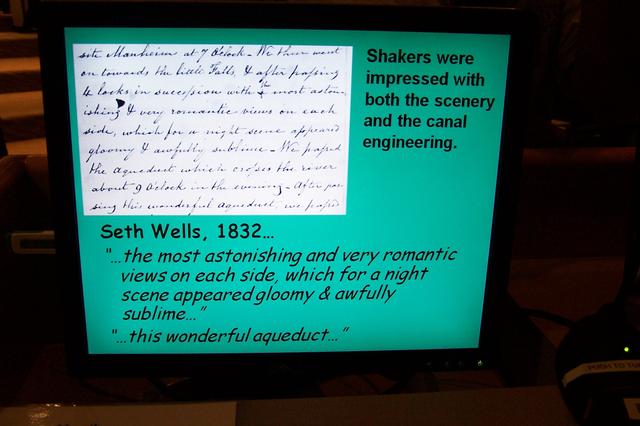 site Manheim at 7 O'clock - We then went
on towards the little Falls, & after passing
4 locks in succession with the most aston-
ishing & very romantic views on each
side, which for a night scene appeared
gloomy & awfully sublime - We passed
the aqueduct which crosses the river
about 9 O'clock in the evening - After pas-
sing this wonderful aqueduct, we passed
Shakers were
impressed with
both the scenery
and the canal
engineering.
Seth Wells, 1832...
"...the most astonishing and very romantic
views on each side, which for a night
scene appeared gloomy & awfully
sublime..."
"...this wonderful aqueduct..."
PUSH TO